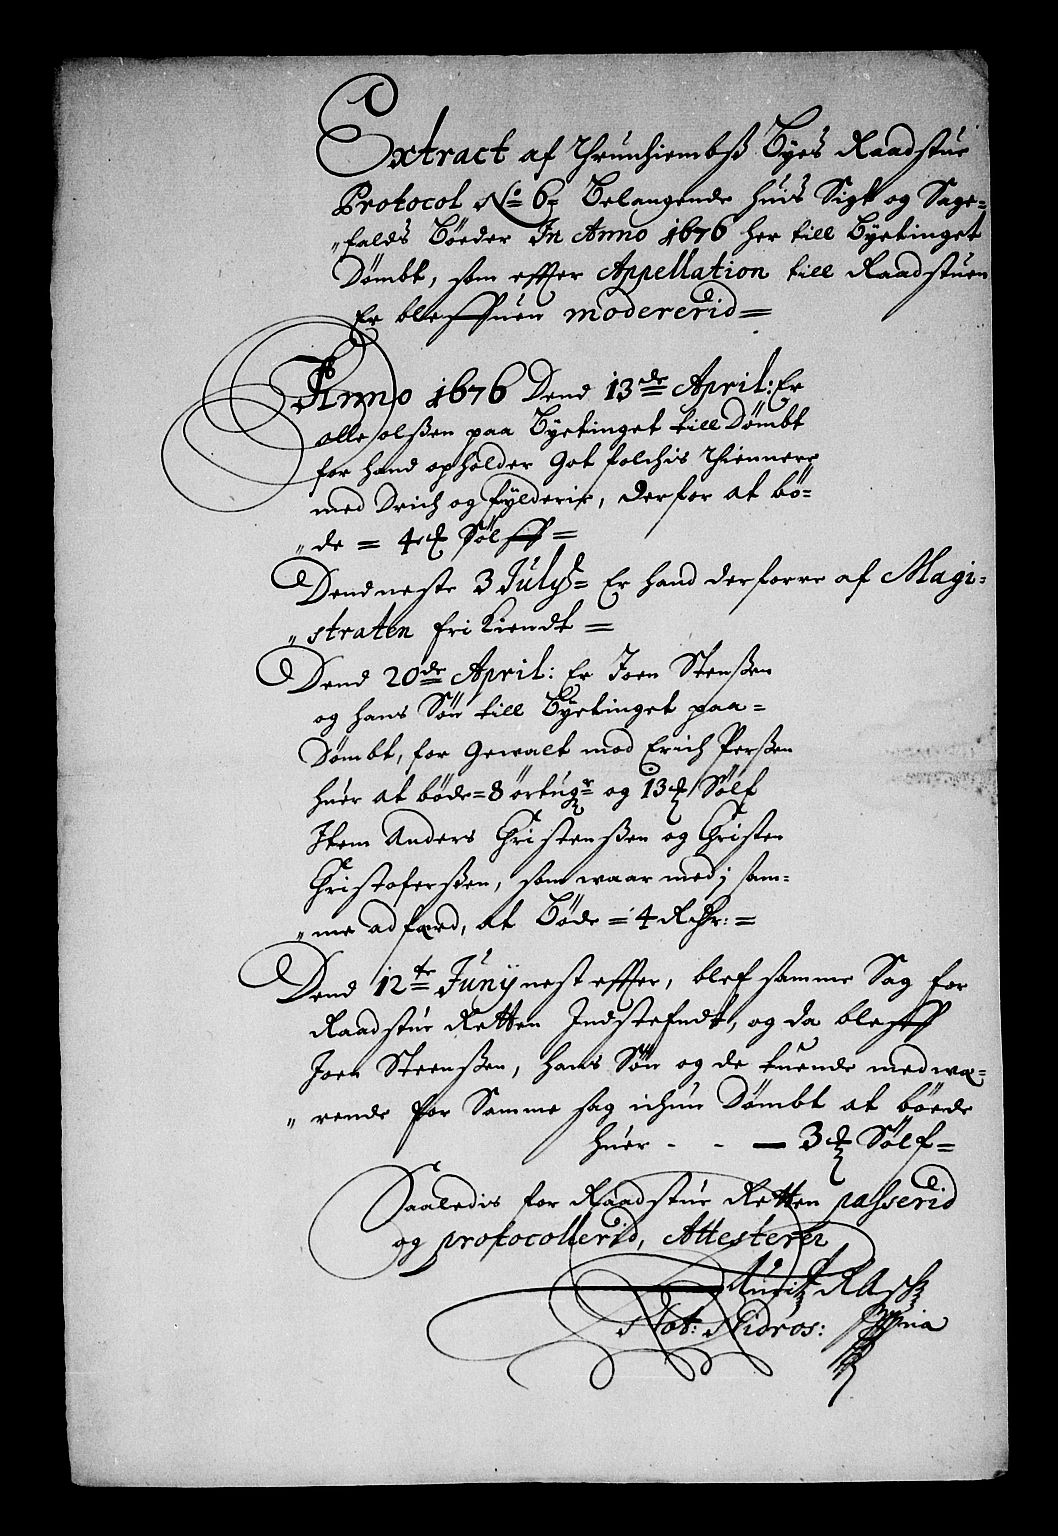 Extract af Thrunhiembß Byes Raadstue
Protocol No 6, Belangende huis Sigt og Sage-
"falds Bøeder In Anno 1676 her till Byetinget
Dømbt, som effter Appellation till Raadstuen
Er bleffuen modererid =
Anno 1676 Dend 13de April: Er
olle olßen paa Byetinget till Dømbt
for hand opholder Got folchis Thiennere
med Drich og fylderie, derfor at bø=
"de = 4 Sølff =
Dend neste 3 July Er hand derforre af Magi=
"straten fri Kiendt =
Dend 20de April: Er Joen Stenßen
og hans Søn till Byetinget paa=
Dømbt, for Gewalt mod Erich Perßen
huer at bøde = 8 ørtugr og 13 Sølf
Item Anders Christenßen og Christen
Christoferßen, som waar med j sam=
"me adfærd, at Bøde = 4 Rdr: =
Dend 12te Junij nest effter, blef samme Sag for
Raadstue Retten Indstefndt, og da bleff
Joen Steenßen, hans Søn og de tuende medwæ=
"rende for Samme sag ichun Dømbt at bøede
huer - - — 3 Sølf =
Saaledis for Raadstue Retten passerid
og protocollerid, Attesterer
Rasch
Not: Nidros: ppria